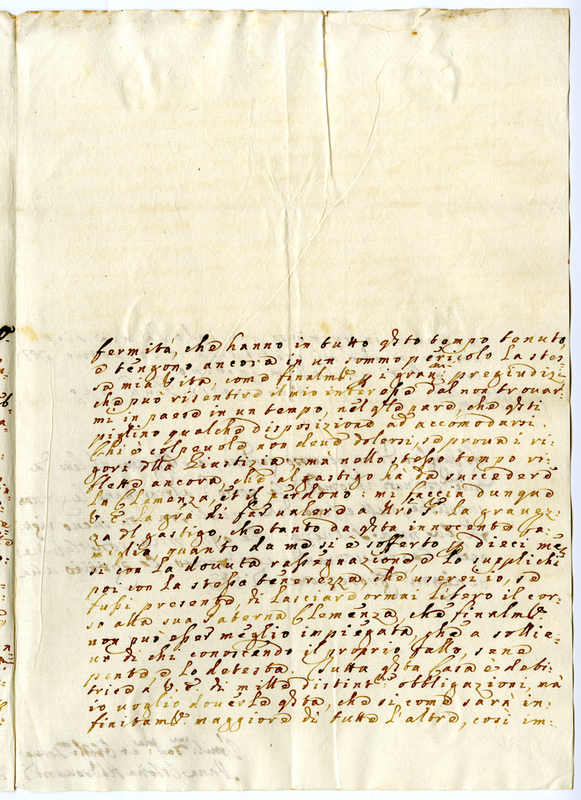 fermità, che hanno in tutto qsto tempo tenuto,
e tengono ancora in un sommo pericolo la stes
sa mia Vita, come finalmte p i grani pregiudizi
che può risentire il mio interesse dal non trovar
mi in paese in un tempo, nel qle pare, che qsti
piglino qualche disposizione ad accomodarsi.
Chi è colpevole non deve dolersi, se prova i ri
gori dlla Giustizia, ma nello stesso tempo ri
flette ancora, che al gastigo ha da succedere
la Clemenza, et il perdono: mi faccia dunque
V. E. la gra di far valere a la gravez
za dl gastigo, che tanto da qsta innocente fa
miglia, quanto da me si è sofferto p dieci me
si con la dovuta rassegnazione, e lo supplichi
poi con la stessa tenerezza, che userei io, se
fussi presente, di lasciare ormai libero il cor
so alla sua Paterna Clemenza, che finalmte
non può esser meglio impiegata, che a sollie
vo di chi conoscendo il proprio fallo, sene
pente, e lo detesta. Tutta qsta Casa è debi
trice a V. E. di mille distinte obbligazioni, mà
io voglio doverle qsta, che si come sarà in
finitamte maggiore di tutte l'altre, così im-